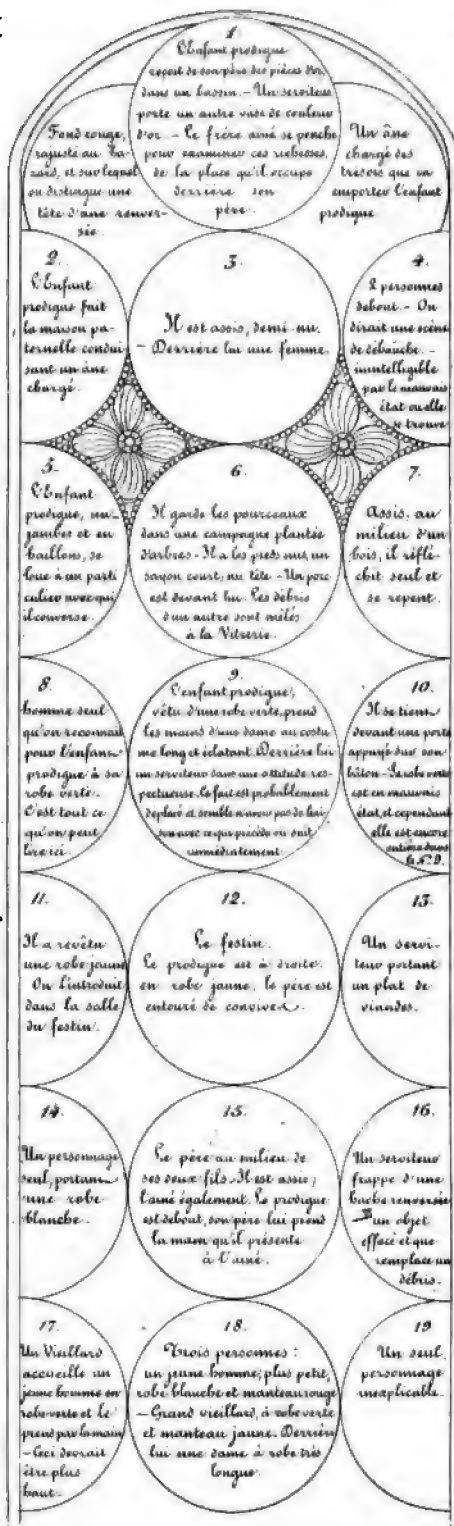 1
L'Enfant prodigue
reçoit de son père des pièces d'or
dans un bassin. — Un serviteur
porte un autre vase de couleur
d'or — Le frère ainé se penche
pour examiner ces richesses,
de la place qu'il occupe
derrière son
père.
Fond rouge,
rajusté au ha-
zard, et sur lequel
on distingue une
tête d'ane renver-
sée.
Un âne
chargé des
trésors que va
emporter l'enfant
prodigue
2.
L'Enfant
prodigue fuit
la maison pa-
ternelle condui-
sant un âne
chargé.
3.
Il est assis, demi-nu.
— Derrière lui une femme.
4.
2 personnes
debout. — On
dirait une scène
de débauche. —
inintelligible
par le mauvais
état où elle
se trouve
5.
L'Enfant
prodigue, nu-
jambes et en
haillons, se
loue à un parti
culier avec qui
il converse.
6.
Il garde les pourceaux
dans une campagne plantée
d'arbres — Il a les pieds nus, un
sayon court, nu tête — Un porc
est devant lui. Les débris
d'un autre sont mêlés
à la Vitrerie.
7.
Assis, au
milieu d'un
bois, il réflé-
chit seul et
se repent.
8.
homme seul
qu'on reconnait
pour l'enfant
prodigue à sa
robe verte.
C'est tout ce
qu'on peut
lire ici.
9.
L'enfant prodigue,
vêtu d'une robe verte, prend
les mains d'une dame au costu
me long et éclatant. Derrière lui
un serviteur dans une attitude res-
pectueuse. Le fait est probablement
déplacé et semble n'avoir pas de liai
son avec ce qui précède ou suit
immédiatement
10.
Il se tient
devant une porte
appuyé sur son
bâton — La robe verte
est en mauvais
état, et cependant
elle est encore
entière dans
le N° 9.
11.
Il a revêtu
une robe jaune
On l'introduit
dans la salle
du festin.
12.
Le festin.
Le prodigue est à droite.
en robe jaune. le père est
entouré de convives.
13.
Un servi-
teur portant
un plat de
viandes.
14.
Un personnage
seul, portant
une robe
blanche.
15.
Le père au milieu de
ses deux fils. Il est assis;
l'ainé également. Le prodigue
est debout, son père lui prend
la main qu'il présente
à l'ainé.
16.
Un serviteur
frappe d'une
hache renversée
un objet
effacé et que
remplace un
débris.
17.
Un Vieillard
accueille un
jeune homme en
robe verte et le
prend par la main
— Ceci devrait
être plus
haut.
18.
Trois personnes :
un jeune homme, plus petit,
robe blanche et manteau rouge
— Grand vieillard, à robe verte
et manteau jaune. Derrière
lui une dame à robe très
longue.
19
Un seul
personnage
inexplicable.